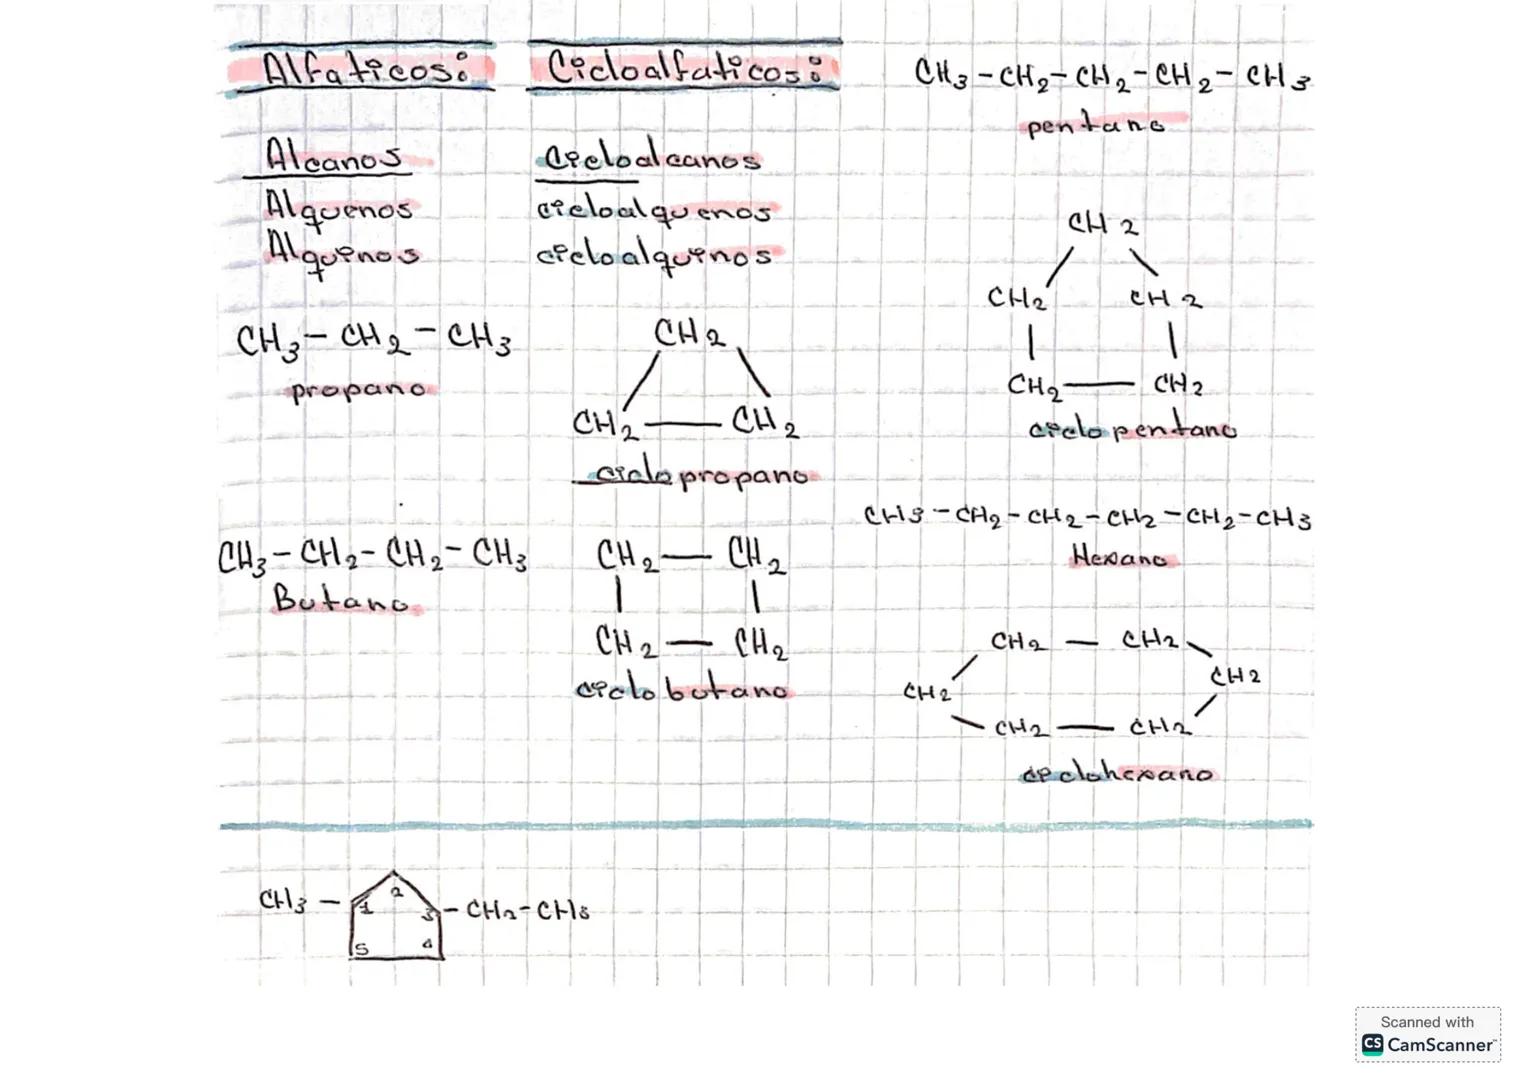 Alfaticos:
Alcanos
Alquenos
Alquinos
CH3 - CH2 - CH3
propano
CH3 - CH2 - CH2 - CH3
Butano
Cicloalfaticos:
Cicloalcanos
cicloalquenos
cicloalquinos
CH2
CH2 — CH2
ciclopropano
CH2 — CH2
CH2 — CH2
ciclobutano
CH3 - CH2 - CH2 - CH2 - CH3
pentano
CH2
CH2 CH2
CH2 — CH2
ciclopentano
CH3 - CH2 - CH2 - CH2 - CH2 - CH3
Hexano
CH2 — CH2
CH2 CH2
CH2 — CH2
ciclohexano
CH3 - 1 2 3 - CH2 - CH3
5 4
Scanned with
CS CamScanner